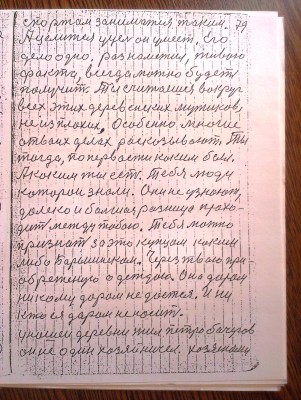 спортом заниматся таким. 29
А училится у чел он умеет. Его
дело одно. Разнаметил, живого
факто, всегда можно будет
получит. Ты считаешся вокруг
всех этих деревенских мужиков,
не из плохих, Особенно многие
отвоих делах расказывают. Ты
тогда, по первости каким был.
А каким ты сет. Тебя люди
которои знали. Они не узнают,
далеко и болшая разница прохо-
дит между тобою. Тебя можно
признат за это купцом каким
либо Барышником. Через твою при-
обретеную одеждою. Она даром
никому даром не дается, И ни
кто ея даром не носит.
У нашей деревни жил петро бочуров
он не один хозяйничел. хозяевами